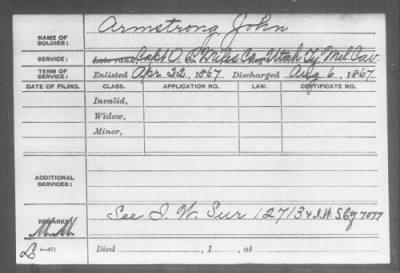 NAME OF SOLDIER: Armstrong, John
SERVICE: Late rank, Capt O. P. Miles Co Utah Ty Mil Cav.
TERM OF SERVICE: Enlisted Apr. 22, 1867. Discharged Aug 6, 1867.
DATE OF FILING. CLASS. APPLICATION NO. LAW. CERTIFICATE NO.
Invalid,
Widow,
Minor,
ADDITIONAL SERVICES:
REMARKS: See I. W. Sur 12713 & I.W.S Ctf 7077
M.M.
Died , 1 , at